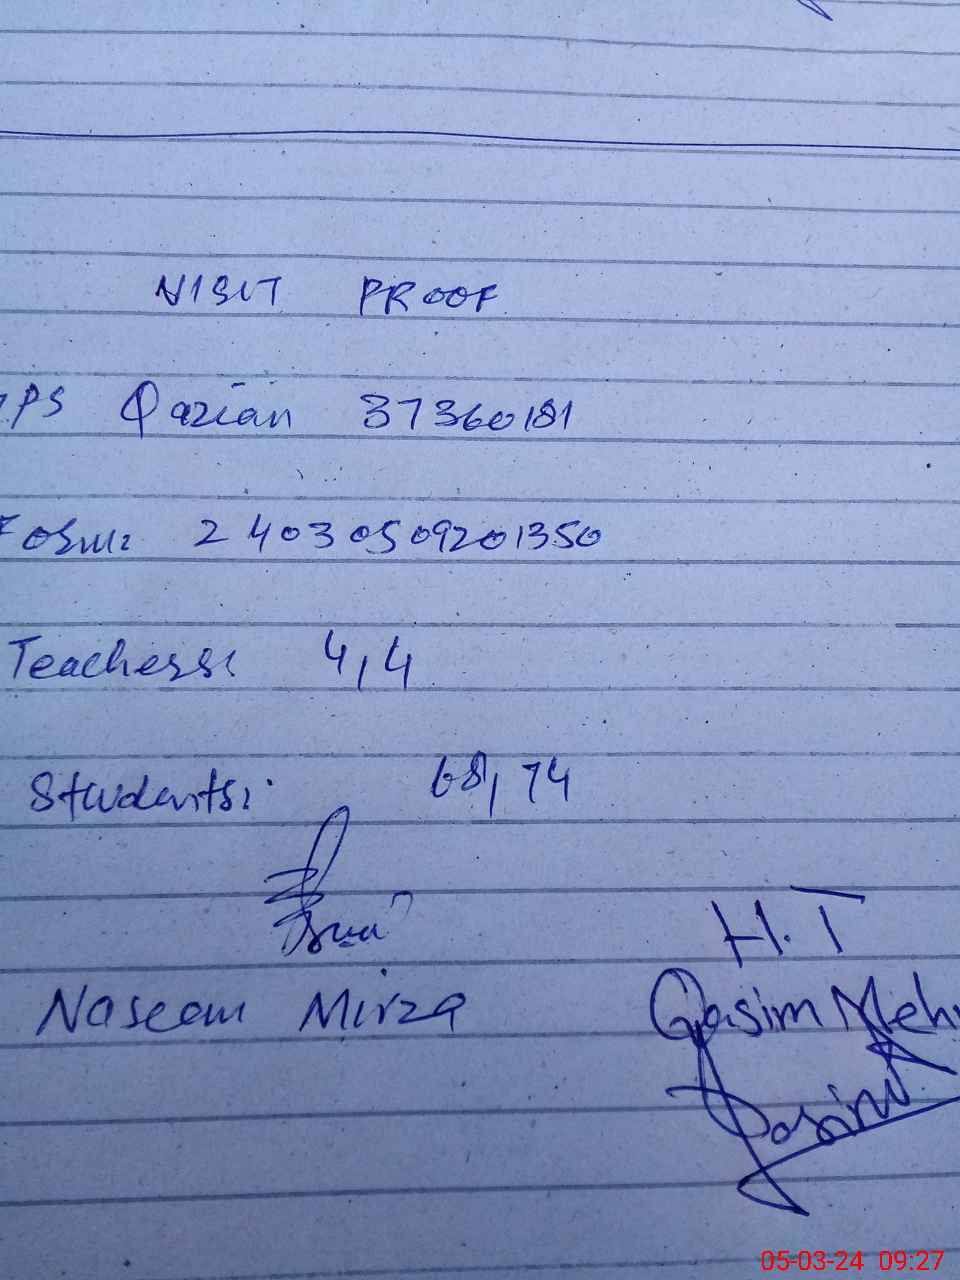 VISIT PROOF
PS Qazian 37360181
Form: 24030509201350
Teachers: 4, 4
Students: 68, 74
H.T
Naseem Mirza Qasim Meh
Qasim
05-03-24 09:27